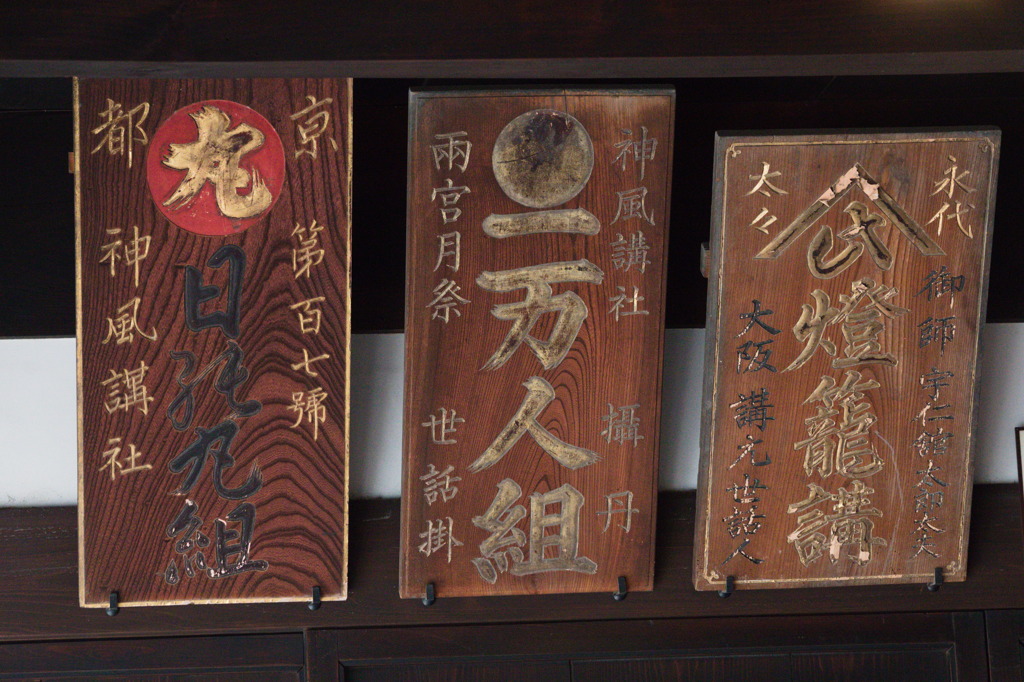 京 第百七號
丸
日の丸組
都 神風講社
神風講社 攝丹
一万人組
兩宮月祭 世話掛
永代
御師 宇仁舘太郎太夫
山
燈籠講
太々
大阪講元世話人